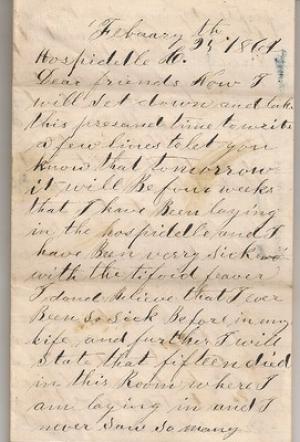 Febuary th
25 1864
Hospiddle No.
Dear friends Now I
will set down and take
this presand time to write
a few lines to let you
know that tomorrow
it will Be four weeks
that I have Been laying
in the hospiddle and I
have Been verry sick
with the tifoid feaver
I dond Believe that I ever
Been so sick Before in my
life and further I will
state that fifteen died
in this Room where I
am laying in and I
never saw so many